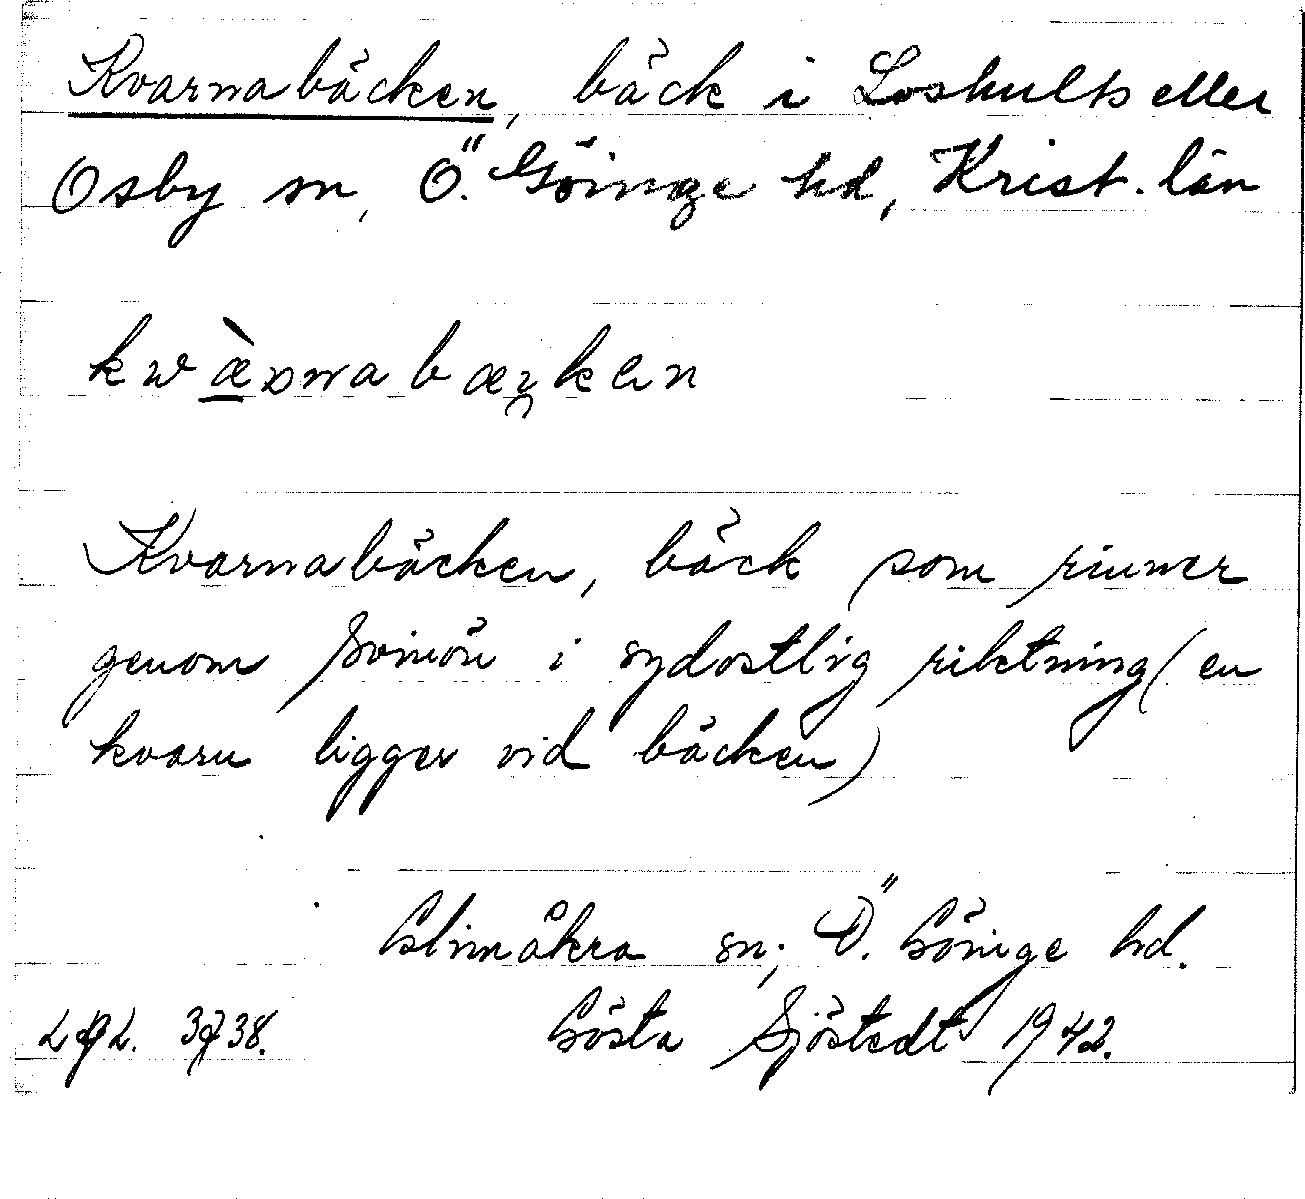 Kvarnabäcken, bäck i Loshults eller
Osby sn, Ö. Göinge hd, Krist. län
Kvarnabäcken, bäck som rinner
genom Svinön i sydostlig riktning (en
kvarn ligger vid bäcken)
Glimåkra sn; Ö. Göinge hd.
Gösta Sjöstedt 1942.